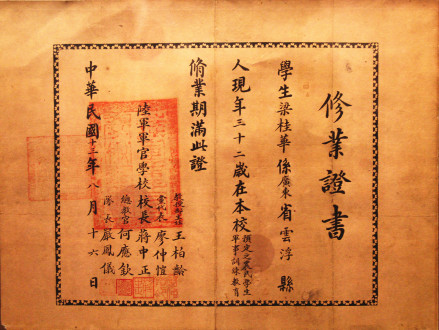 修業證書
學生梁桂華係廣東省雲浮縣
人現年三十二歲在本校預定之農民學生軍事訓練教育
脩業期滿此證
教授部主任王柏齡
黨代表廖仲愷
陸軍軍官學校校長蔣中正
總教官何應欽
隊長嚴鳳儀
中華民國十三年八月十六日